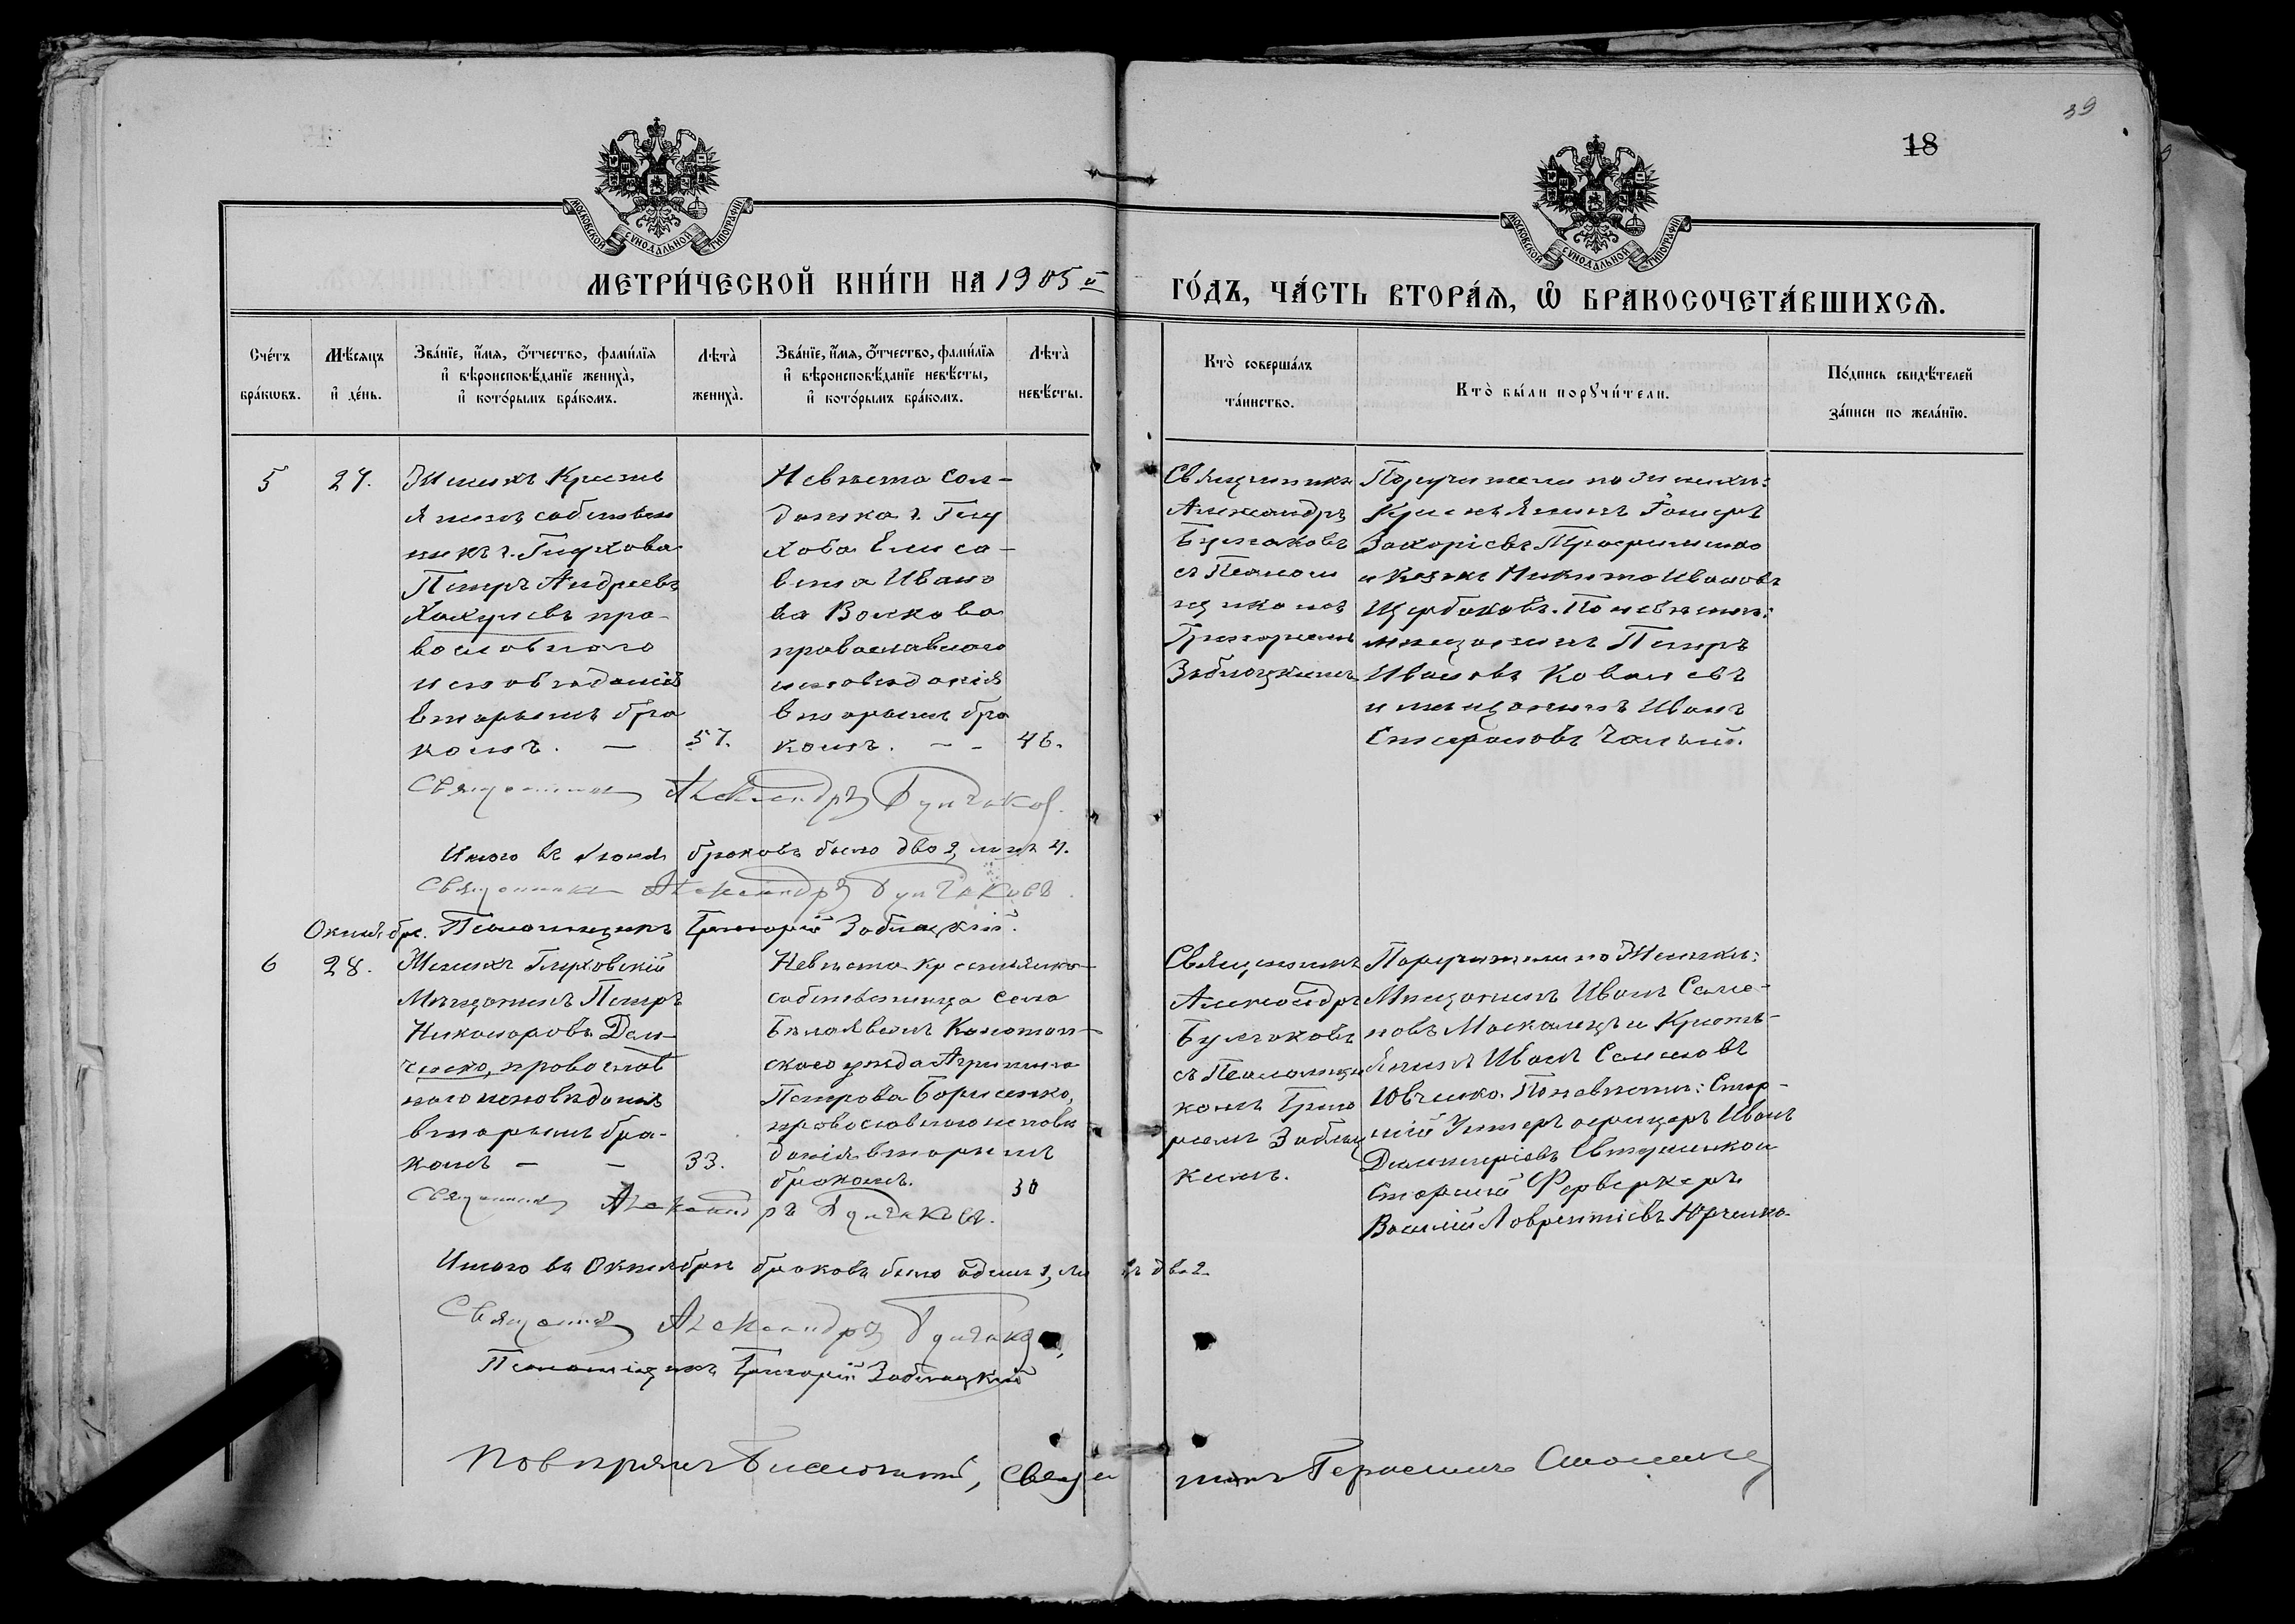 39
18
МОСКОВСКОЙ СУНОДАЛЬНОЙ ТИПОГРАФІИ
МОСКОВСКОЙ СУНОДАЛЬНОЙ ТИПОГРАФІИ
МЕТРИ́ЧЕСКОЙ КНИ́ГИ НА 1905 й
ГО́ДЪ, ЧА́СТЬ ВТОРА́Ѧ, Ѡ҆ БРАКОСОЧЕТА́ВШИХСѦ.
Сче́тъ
бра́кѡвъ.
Мѣ́сяцъ
и҆ де́нь.
Зва́нїе, и҆́мѧ, ѻ҆́тчество, фами́лїѧ
и҆ вѣроисповѣ́данїе жениха̀,
и҆ кото́рымъ бра́комъ.
Лѣта̀
жениха̀.
Зва́нїе, и҆́мѧ, ѻ҆́тчество, фами́лїѧ
и҆ вѣроисповѣ́данїе невѣ́сты,
и҆ кото́рымъ бра́комъ.
Лѣта̀
невѣ́сты.
Кто̀ соверша́лъ
та́инство.
Кто̀ бы́ли порꙋчи́тели.
По́дпись свидѣ́телей
за́писи по жела́нїю.
5
27.
Женихъ Кресть
янинъ собствен
никъ г. Глухова
Петръ Андреевъ
пра-
вославнаго
исповѣданія
вторымъ бра
комъ. —
57.
Невѣста Сол-
датка г. Глу
хова Елиса-
вета Ивано
ва Волкова
православнаго
исповѣданія
вторымъ бра
комъ. - -
46.
Священникъ
Александръ
Булчаковъ
съ Псалом
щикомъ
Григоріемъ
Заблоцкимъ
Поручители по женихѣ:
Крестьянинъ
Захаріевъ
и Козакъ Никита Ивановъ
Щербаковъ. По невѣстѣ:
мѣщанинъ Петръ
Ивановъ Ковалевъ
и мѣщанинъ Иванъ
Стефановъ Чалый.
Священникъ Александръ Булчаковъ.
Итого въ браковъ было два 2, лицъ 4.
Священникъ Александръ Булчаковъ.
Псаломщикъ Григорій Заблоцкій.
Октябрь.
6
28.
Женихъ Глуховскій
Мѣщанинъ Петръ
Никаноровъ Дем-
ченко, православ
наго исповѣданія
вторымъ бра-
комъ — —
33.
Невѣста крестьянка
собственница села
Конотоп-
скаго уѣзда Агрипина
Петрова Борисенко,
православнаго исповѣ
данія вторымъ
бракомъ.
30
Священникъ
Александръ
Булчаковъ
съ Псаломщи
комъ Григо
ріемъ Заблоц
кимъ.
Поручители по Женихѣ:
Мѣщанинъ Иванъ Семе-
новъ Москалецъ и Кресть-
янинъ Иванъ Семеновъ
Ювченко. По невѣстѣ: Стар-
шій Унтеръ офицеръ Иванъ
Димитріевъ
Старшій Феерверкеръ
Василій Лаврентіевъ Юрченко.
Священникъ Александръ Булчаковъ.
Итого въ Октябрѣ браковъ было одинъ 1, лицъ два 2.
Священникъ Александръ Булчаковъ,
Псаломщикъ Григорій Заблоцкій
Повѣрялъ Благочинный, священникъ Герасимъ